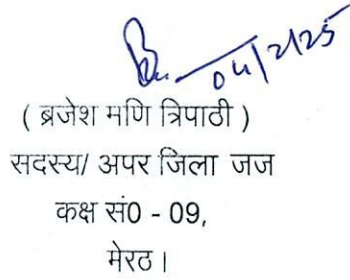 04/2/25
( ब्रजेश मणि त्रिपाठी )
सदस्य/ अपर जिला जज
कक्ष सं0 - 09,
मेरठ।